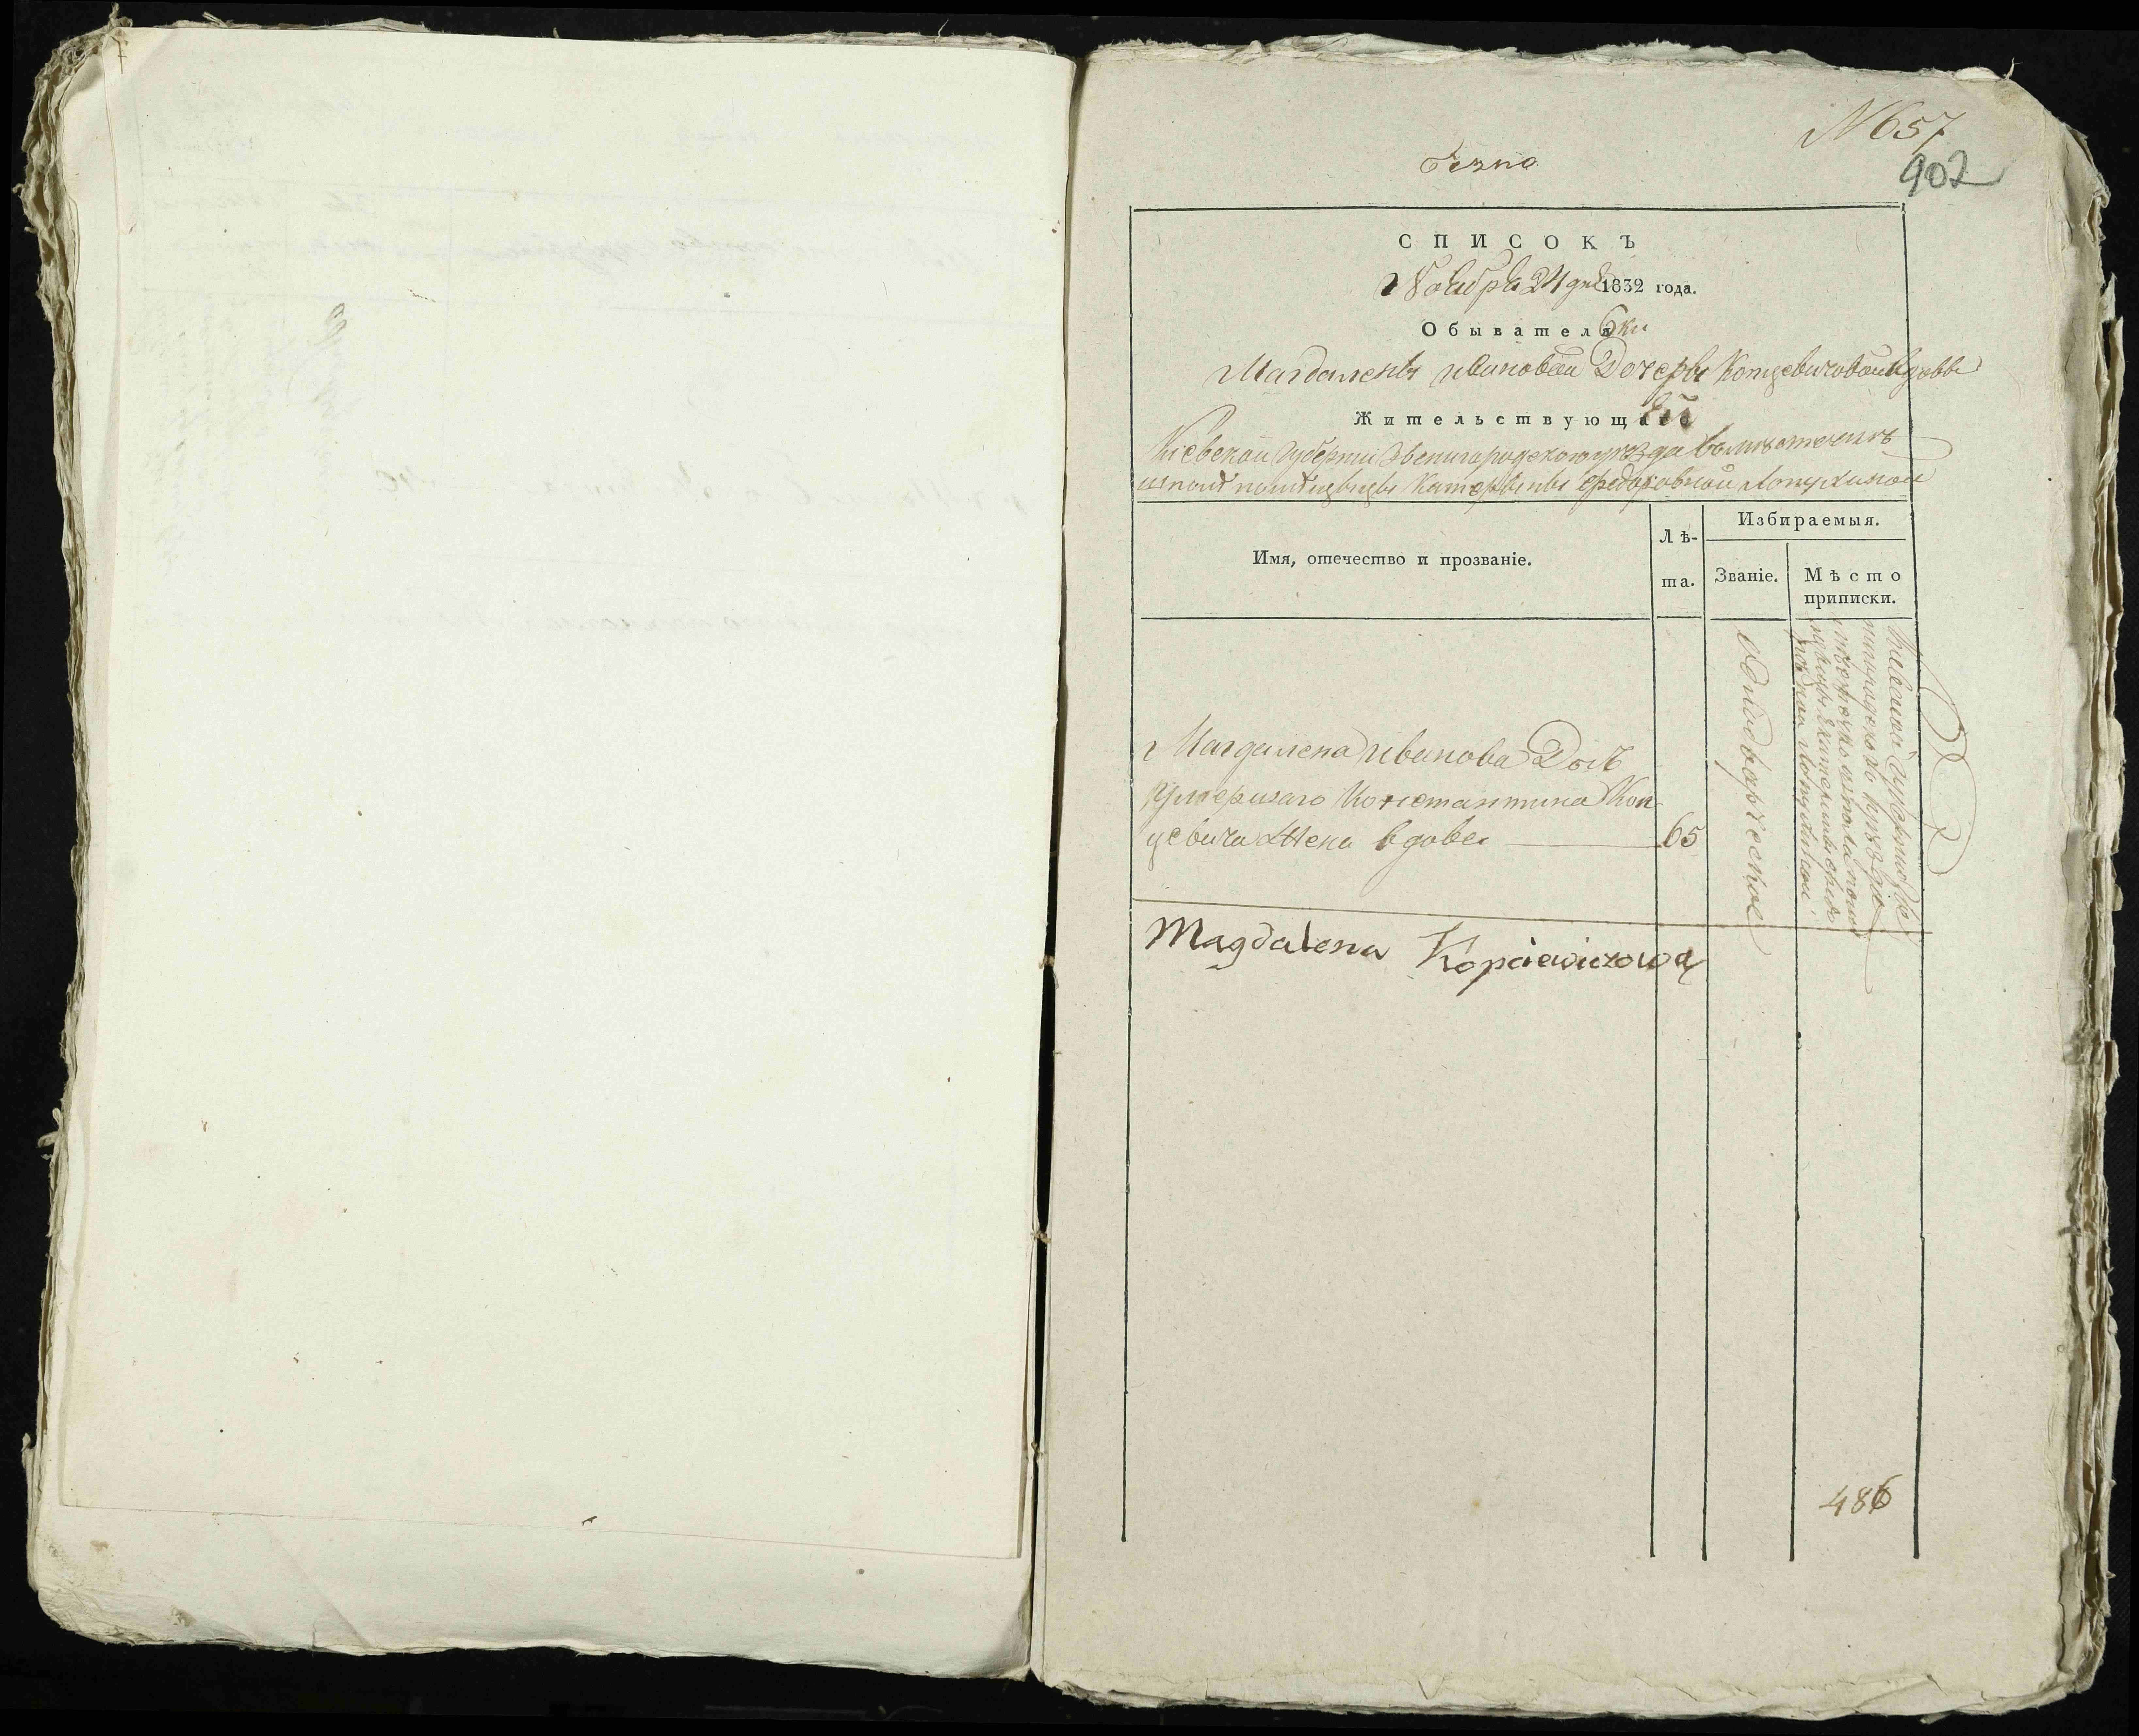 № 657
902
СПИСОКЪ
Ноября 24 дня 1832 года.
Обывательки
Магдалены Ивановой Дочери Копцевичовой Вдовы
Жительствующей
Киевской Губернии Звенигородского уезда
Катерыны Федоровной Лопухиной
Имя, отечество и прозваніе.
Лѣ-
та.
Избираемыя.
Званіе.
Мѣсто
приписки.
Магдалена Иванова Дочь
Умершаго Константина Коп-
цевича Жена вдова 65
однодворческое
Киевской Губернии Зве-
нигородского уезда
Magdalena Kopciewiczowa
486